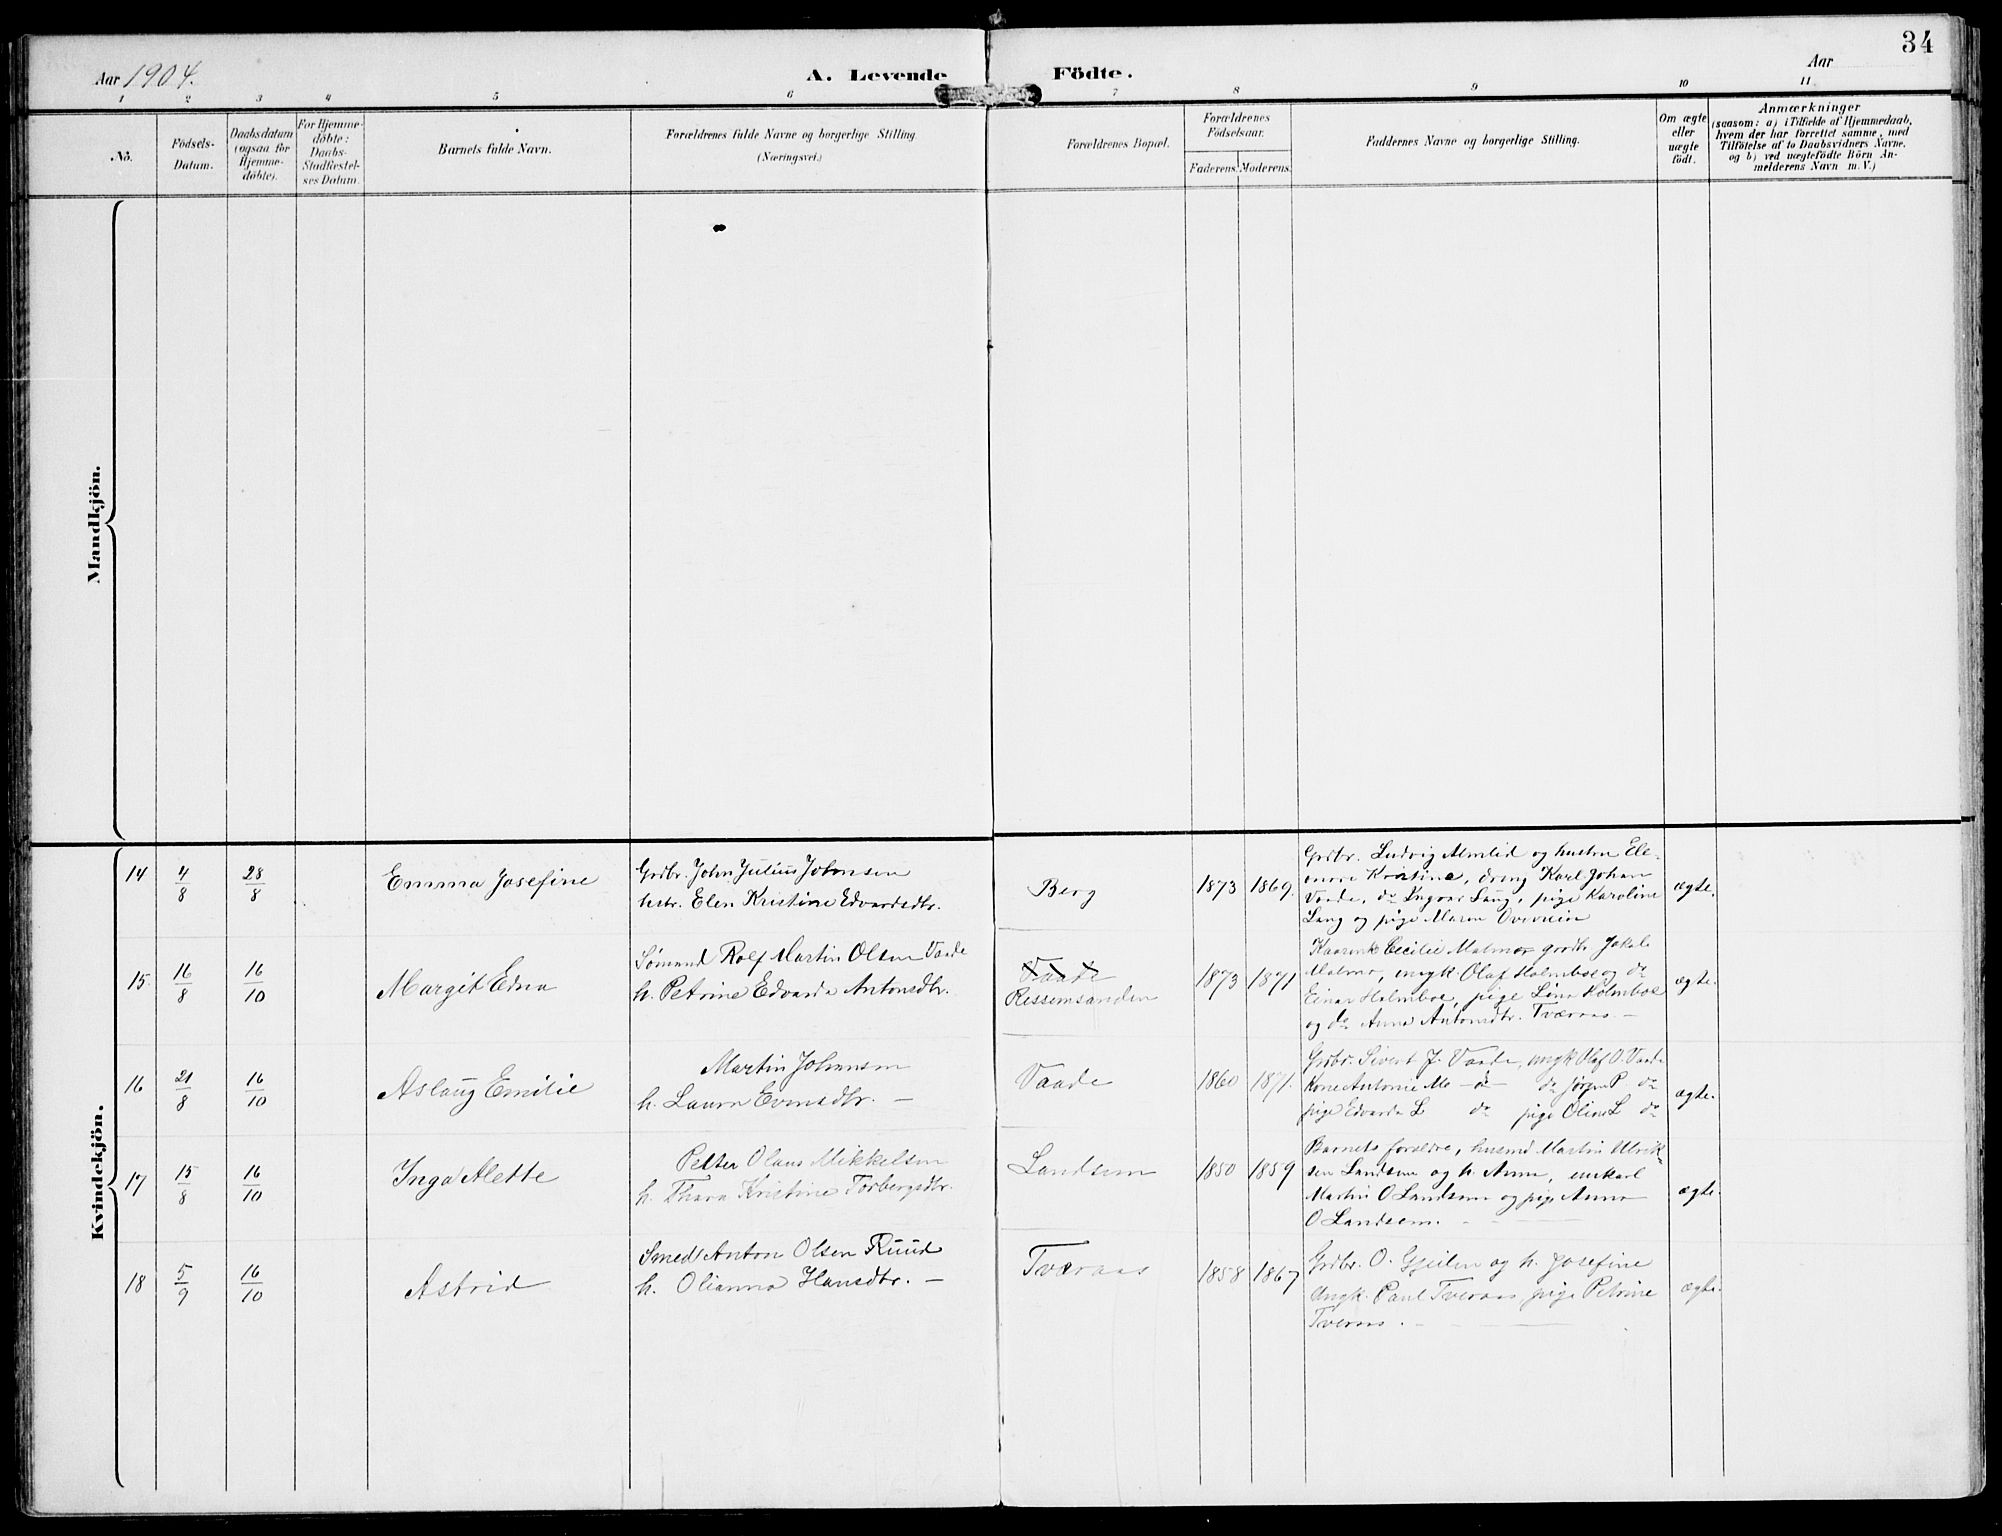 34
Aar 1904.
A. Levende Födte.
Aar
1 2 3 4 5 6 7 8 9 10 11
No.
Födsels-
Datum.
Daabsdatum
(ogsaa for
Hjemme-
döbte).
For Hjemme-
döbte:
Daabs-
Stadfæstel-
ses Datum.
Barnets fulde Navn.
Forældrenes fulde Navne og borgerlige Stilling.
(Næringsvei.)
Forældrenes Bopæl.
Forældrenes
Födselsaar.
Faderens. Moderens.
Faddernes Navne og borgerlige Stilling.
Om ægte
eller
uægte
födt.
Anmærkninger
(saasom: a) i Tilfælde af Hjemmedaab,
hvem der har forrettet samme, med
Tilföielse af to Daabsvidners Navne,
og b) ved uægtefödte Börn An-
melderens Navn m. V.)
Mandkjön.
Kvindekjön.
14 4/8 28/8 Emma Josefine
Grdbr. John Julius Johnsen
hstr. Elen Kristine Edvardsdtr.
Berg
1873 1869.
Grdbr. Ludvig Almlid og hustru Ele-
nore Kristine, dreng Karl Johan
Vaade, do Ingvar Lang, pige Karoline
Lang og pige Maren Overvein
ægte.
15. 16/8 16/10 Margit Edna
Sømand Rolf Martin Olsen Vaade
h. Petrine Edvarda Antonsdtr.
Vaade
Ressemsanden
1873 1871
Cecilie Malmo grdbr. Jakob
Malmo, ungk. Olaf Holmboe og do
Einar Holmboe, pige Lina Holmboe
og do Anna Antonsdtr. Tværaas. –
ægte.
16 21/8 16/10 Aslaug Emilie
Martin Johansen
h. Laura Evensdtr. –
Vaade
1860 1871.
Grdbr. Sivert J. Vaade, ungk Olaf O. Vaade
Kone Antonie Mo – do – do Jørgen P. do
pige Edvarda L do pige Oline L do
ægte.
17 15/8 16/10 Inga Alette
Petter Olaus Mikkelsen
h. Thora Kristine Torbergsdtr.
Landsem
1850 1859
Barnets forældre, husmd Martin Ulrik-
sen Landsem og h. Anne, enkarl
Martin O Landsem og pige Anna
O Landsem.
ægte.
18 5/9 16/10 Astrid
Smed Anton Olsen Ruud
h. Olianna Hansdtr. –
Tværaas
1858 1867
Grdbr. O. Gjeilen og h. Josefine
Ungk. Paul Tveraas, pige Petrine
Tveraas.
ægte.